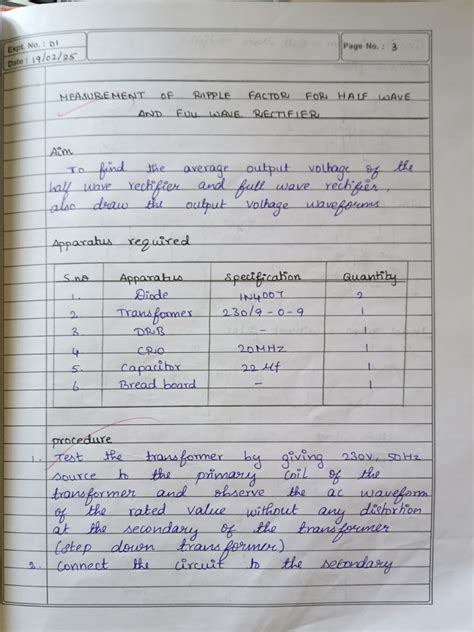 Expt. No. : 01
Date : 19/02/25
Page No. : 3
MEASUREMENT OF RIPPLE FACTOR FOR HALF WAVE
AND FULL WAVE RECTIFIER
Aim
To find the average output voltage of the
half wave rectifier and full wave rectifier,
also draw the output voltage waveforms
Apparatus required
S.no Apparatus Specification Quantity
1. Diode 1N4007 2
2 Transformer 230/9-0-9 1
3 DRB - 1
4 CRO 20MHz 1
5. Capacitor 22 Mf 1
6 Bread board - 1
procedure
1. Test the transformer by giving 230V, 50Hz
source to the primary coil of the
transformer and observe the ac waveform
of the rated value without any distortion
at the secondary of the transformer
(step down transformer)
2. Connect the circuit to the secondary